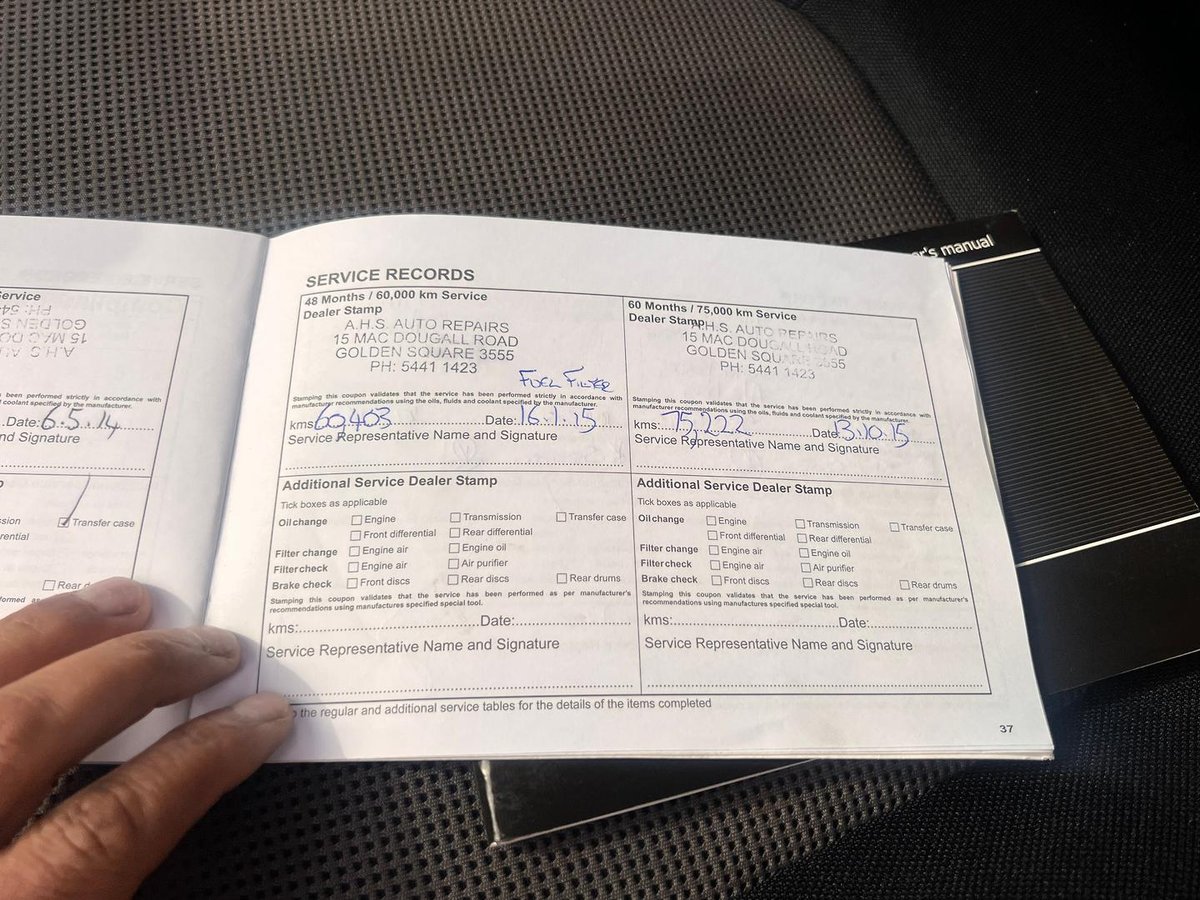 er's manual
SERVICE RECORDS
ervice
PH: 544
GOLDEN S
15 MAC DO
A.H.S. A
been performed strictly in accordance with
coolant specified by the manufacturer.
Date: 6.5.14
nd Signature
sion ☑ Transfer case
rential
☐ Rear d
formed as
48 Months / 60,000 km Service
Dealer Stamp
A.H.S. AUTO REPAIRS
15 MAC DOUGALL ROAD
GOLDEN SQUARE 3555
PH: 5441 1423
FUEL FILTER
Stamping this coupon validates that the service has been performed strictly in accordance with
manufacturer recommendations using the oils, fluids and coolant specified by the manufacturer.
kms: 60,403 Date: 16.1.15
Service Representative Name and Signature
Additional Service Dealer Stamp
Tick boxes as applicable
Oil change ☐ Engine ☐ Transmission ☐ Transfer case
☐ Front differential ☐ Rear differential
Filter change ☐ Engine air ☐ Engine oil
Filter check ☐ Engine air ☐ Air purifier
Brake check ☐ Front discs ☐ Rear discs ☐ Rear drums
Stamping this coupon validates that the service has been performed as per manufacturer's
recommendations using manufactures specified special tool.
kms: Date:
Service Representative Name and Signature
60 Months / 75,000 km Service
Dealer Stamp
A.H.S. AUTO REPAIRS
15 MAC DOUGALL ROAD
GOLDEN SQUARE 3555
PH: 5441 1423
Stamping this coupon validates that the service has been performed strictly in accordance with
manufacturer recommendations using the oils, fluids and coolant specified by the manufacturer.
kms: 75,222 Date: 13.10.15
Service Representative Name and Signature
Additional Service Dealer Stamp
Tick boxes as applicable
Oil change ☐ Engine ☐ Transmission ☐ Transfer case
☐ Front differential ☐ Rear differential
Filter change ☐ Engine air ☐ Engine oil
Filter check ☐ Engine air ☐ Air purifier
Brake check ☐ Front discs ☐ Rear discs ☐ Rear drums
Stamping this coupon validates that the service has been performed as per manufacturer's
recommendations using manufactures specified special tool.
kms: Date:
Service Representative Name and Signature
the regular and additional service tables for the details of the items completed
37